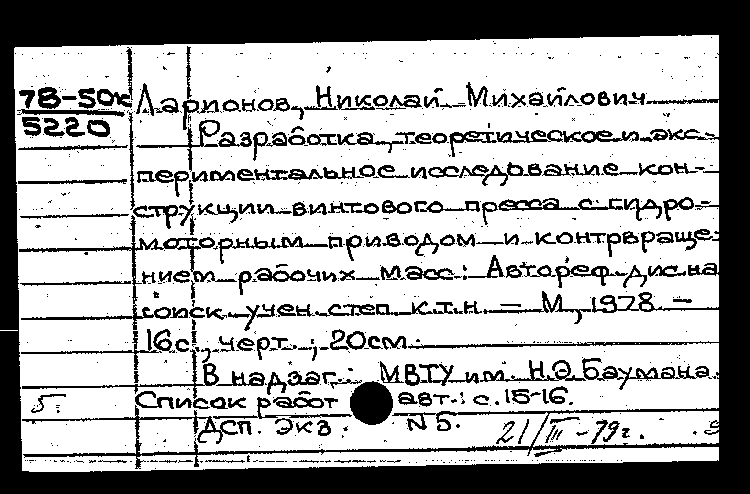 78-50к Ларионов, Николай Михайлович
5220 Разработка, теоретическое и экс-
периментальное исследование кон-
струкции винтового пресса с гидро-
моторным приводом и контрвраще-
нием рабочих масс: Автореф. дис. на
соиск. учен. степ. к.т.н. – М, 1978 –
16с., черт. ; 20см.
В надзаг.: МВТУ им. Н.Э.Баумана.
5. Список работ авт.: с.15-16.
ДСП. Экз. N 5. 21/III-79г.